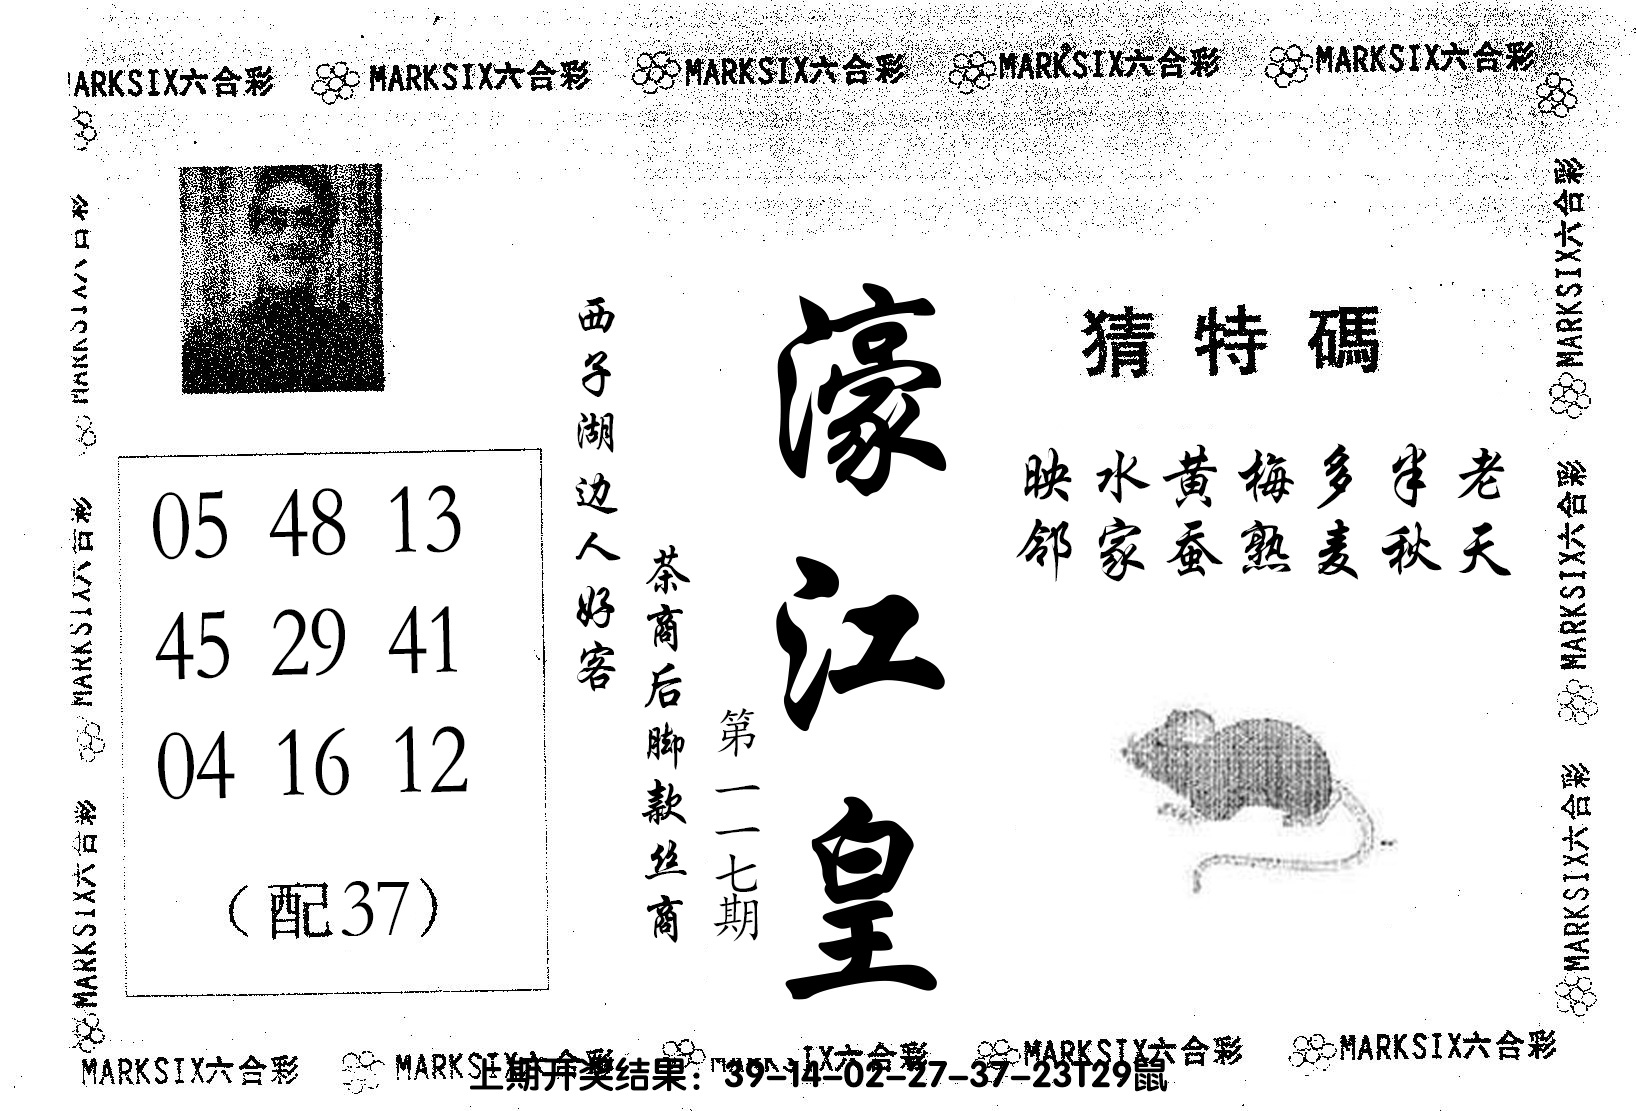 MARKSIX六合彩 MARKSIX六合彩 MARKSIX六合彩 MARKSIX六合彩 MARKSIX六合彩
MARKSIX六合彩
MARKSIX六合彩
MARKSIX六合彩
05 48 13
45 29 41
04 16 12
（配37）
西子湖边人好客
茶商后脚款丝商
第一一七期
濠江皇
猜特碼
映水黄梅多半老
邻家蚕熟麦秋天
MARKSIX六合彩
MARKSIX六合彩
MARKSIX六合彩
MARKSIX六合彩 MARKSIX六合彩 IX六合彩 MARKSIX六合彩 MARKSIX六合彩
上期开奖结果：39-14-02-27-37-23T29鼠